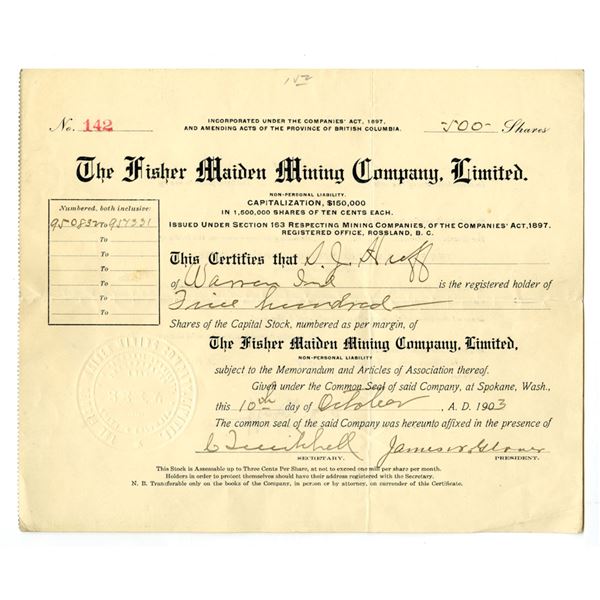 152
No. 142
INCORPORATED UNDER THE COMPANIES' ACT, 1897,
AND AMENDING ACTS OF THE PROVINCE OF BRITISH COLUMBIA.
500 Shares
The Fisher Maiden Mining Company, Limited.
NON-PERSONAL LIABILITY.
CAPITALIZATION, $150,000
IN 1,500,000 SHARES OF TEN CENTS EACH.
ISSUED UNDER SECTION 163 RESPECTING MINING COMPANIES, OF THE COMPANIES' ACT, 1897.
REGISTERED OFFICE, ROSSLAND, B. C.
Numbered, both inclusive:
950832 To 951331
To
To
To
To
To
To
This Certifies that S. J. Huff
of Warren Ind is the registered holder of
Five hundred
Shares of the Capital Stock, numbered as per margin, of
The Fisher Maiden Mining Company, Limited,
NON-PERSONAL LIABILITY
subject to the Memorandum and Articles of Association thereof.
Given under the Common Seal of said Company, at Spokane, Wash.,
this 10th day of October, A. D. 1903
The common seal of the said Company was hereunto affixed in the presence of
James N. Glover
SECRETARY.
PRESIDENT.
This Stock is Assessable up to Three Cents Per Share, at not to exceed one mill per share per month.
Holders in order to protect themselves should have their address registered with the Secretary.
N. B. Transferable only on the books of the Company, in person or by attorney, on surrender of this Certificate.